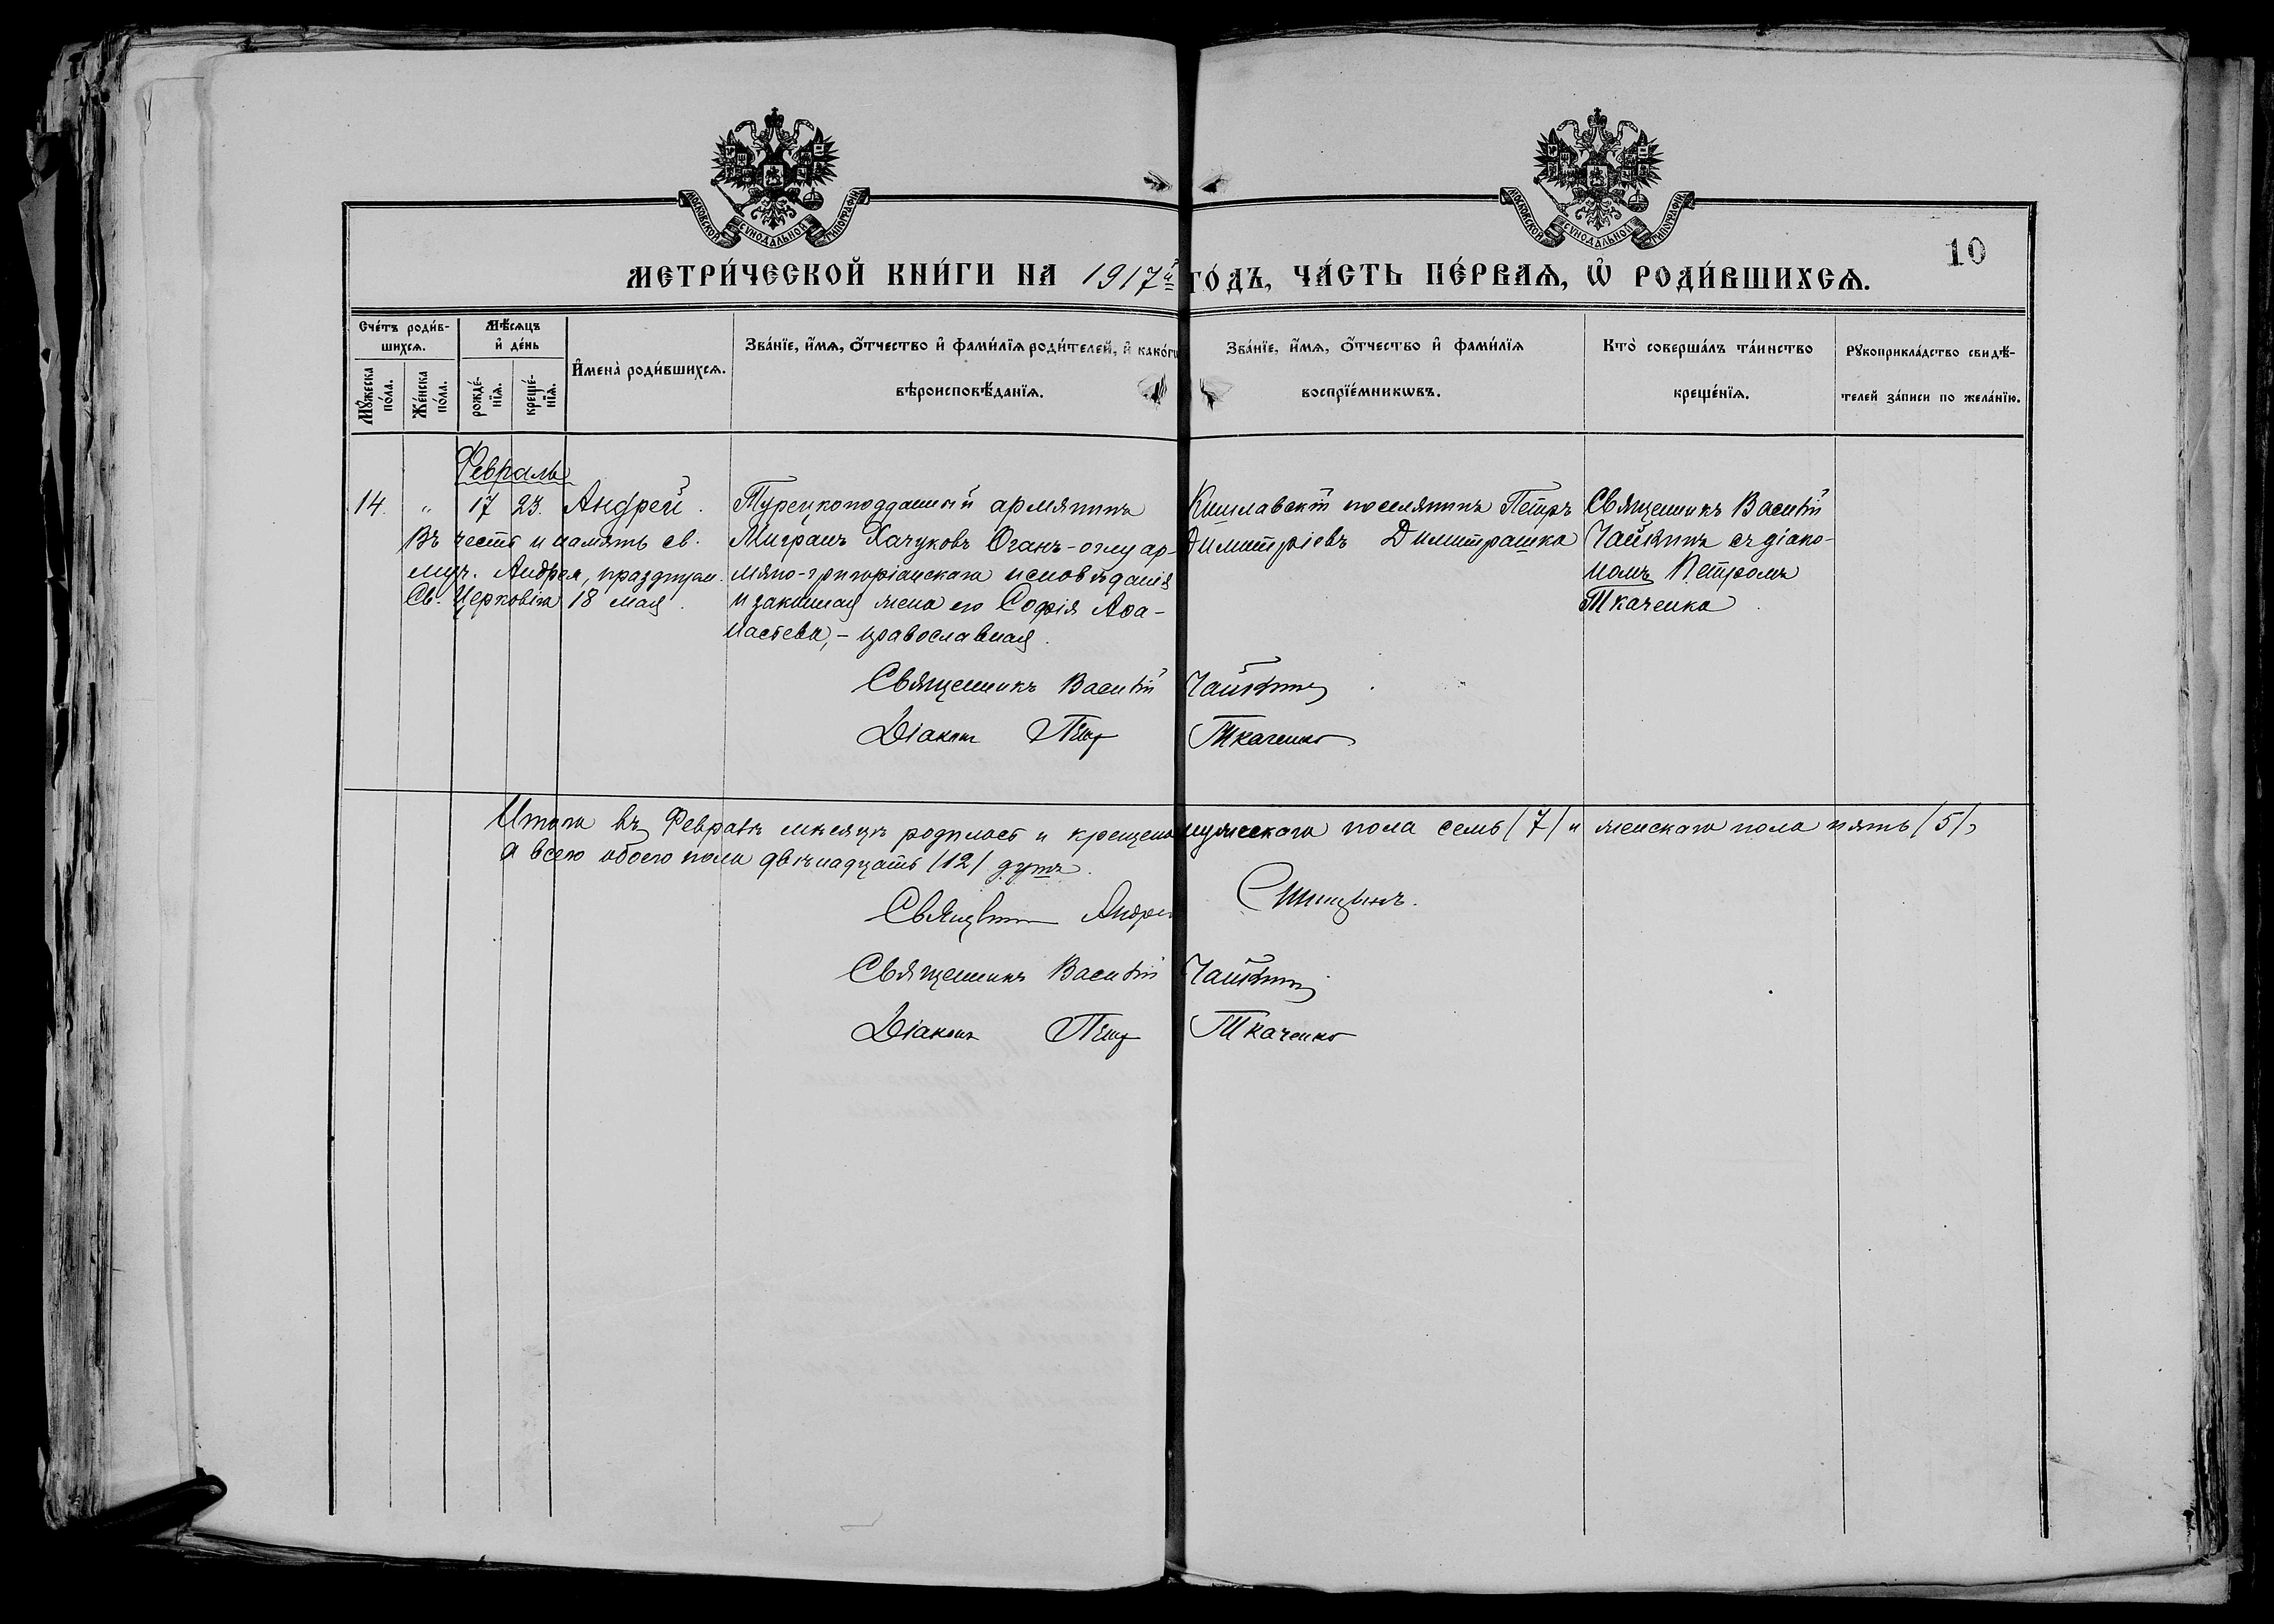 МОСКОВСКОЙ СѴНОДАЛЬНОЙ ТИПОГРАФІИ
МОСКОВСКОЙ СѴНОДАЛЬНОЙ ТИПОГРАФІИ
10
МЕТРИ́ЧЕСКОЙ КНИ́ГИ НА 1917й ГО́ДЪ, ЧА́СТЬ ПЕ́РВАѦ, Ѡ҆ РОДИ́ВШИХСѦ.
Сче́тъ роди́в-
шихсѧ.
Мꙋ́жеска
по́ла.
Же́нска
по́ла.
Мѣ́сѧцъ
и҆ де́нь
рожде́-
нїѧ.
креще́-
нїѧ.
И҆мена̀ роди́вшихсѧ.
Зва́нїе, и҆́мѧ, ѻ҆́тчество и҆ фами́лїѧ роди́телей, и҆ како́гѡ
вѣроисповѣ́данїѧ.
Зва́нїе, и҆́мѧ, ѻ҆́тчество и҆ фами́лїѧ
воспрїе́мникѡвъ.
Кто̀ соверша́лъ та́инство
креще́нїѧ.
Рꙋкоприкла́дство свидѣ́-
телей за́писи по жела́нїю.
Февраль
14. " 17 23. Андрей.
Въ честь и память св.
муч. Андрея, праздвуем.
Св. Церковію 18 мая.
Турецкоподданный армянинъ
Мигранъ Хачуковъ Оганъ-оглу ар-
мяно-григоріанскаго исповѣданія
и законная жена его Софія Аѳа-
насьева, – православная.
Кишлавскій поселянинъ Петръ
Димитріевъ Димитрашка
Священникъ Василій
Чайкинъ съ діако-
номъ Петромъ
Ткаченко
Священникъ Василій Чайкинъ
Діаконъ Петр Ткаченко
Итого въ Февралѣ мѣсяцѣ родилось и крещено мужескаго пола семь /7/ и женскаго пола пять /5/,
а всего обоего пола двѣнадцать /12/ душъ.
Священник Андрей
Священникъ Василій Чайкинъ
Діаконъ Петр Ткаченко